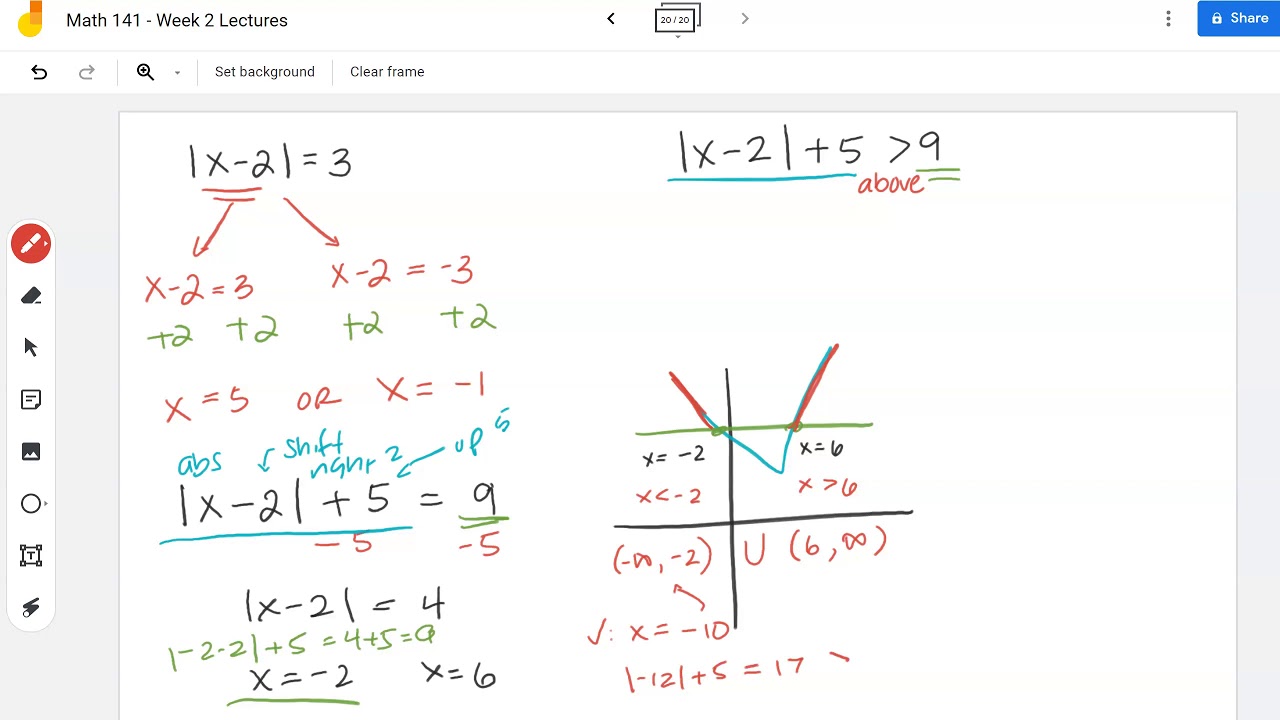 Math 141 - Week 2 Lectures
20 / 20
Share
Set background
Clear frame
|x-2| = 3
x-2 = 3
x-2 = -3
+2 +2 +2 +2
x = 5 OR x = -1
abs shift right 2 up 5
|x-2| + 5 = 9
-5 -5
|x-2| = 4
|-2-2| + 5 = 4+5 = 9
x = -2 x = 6
|x-2| + 5 > 9
above
x = -2 x = 6
x < -2 x > 6
(-∞, -2) U (6, ∞)
√: x = -10
|-12| + 5 = 17 >